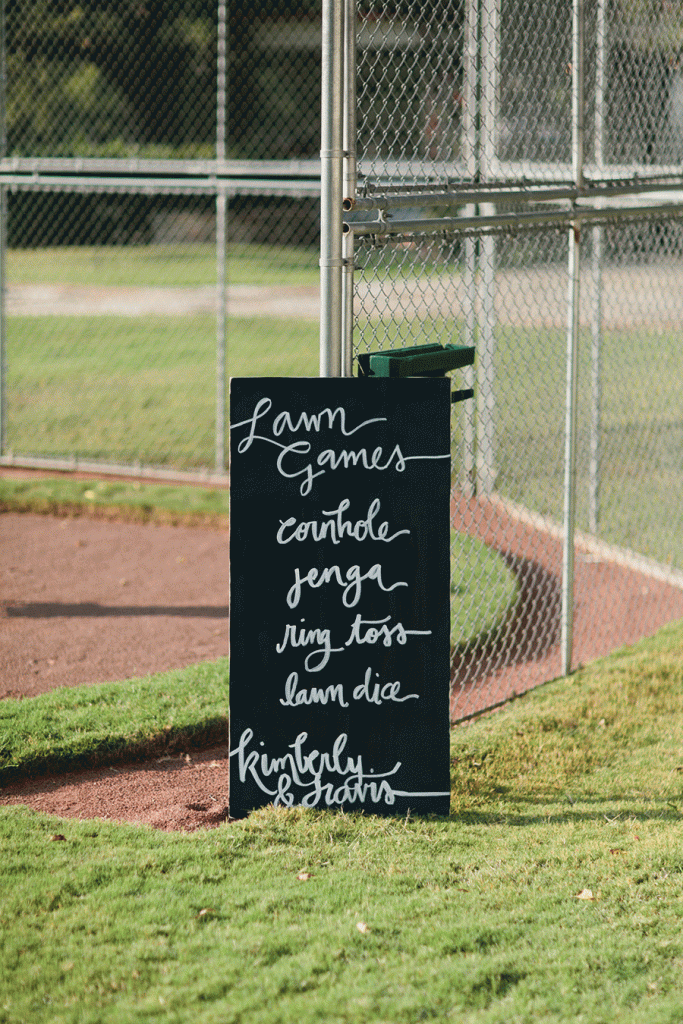 Lawn
Games
cornhole
jenga
ring toss
lawn dice
kimberly
& travis